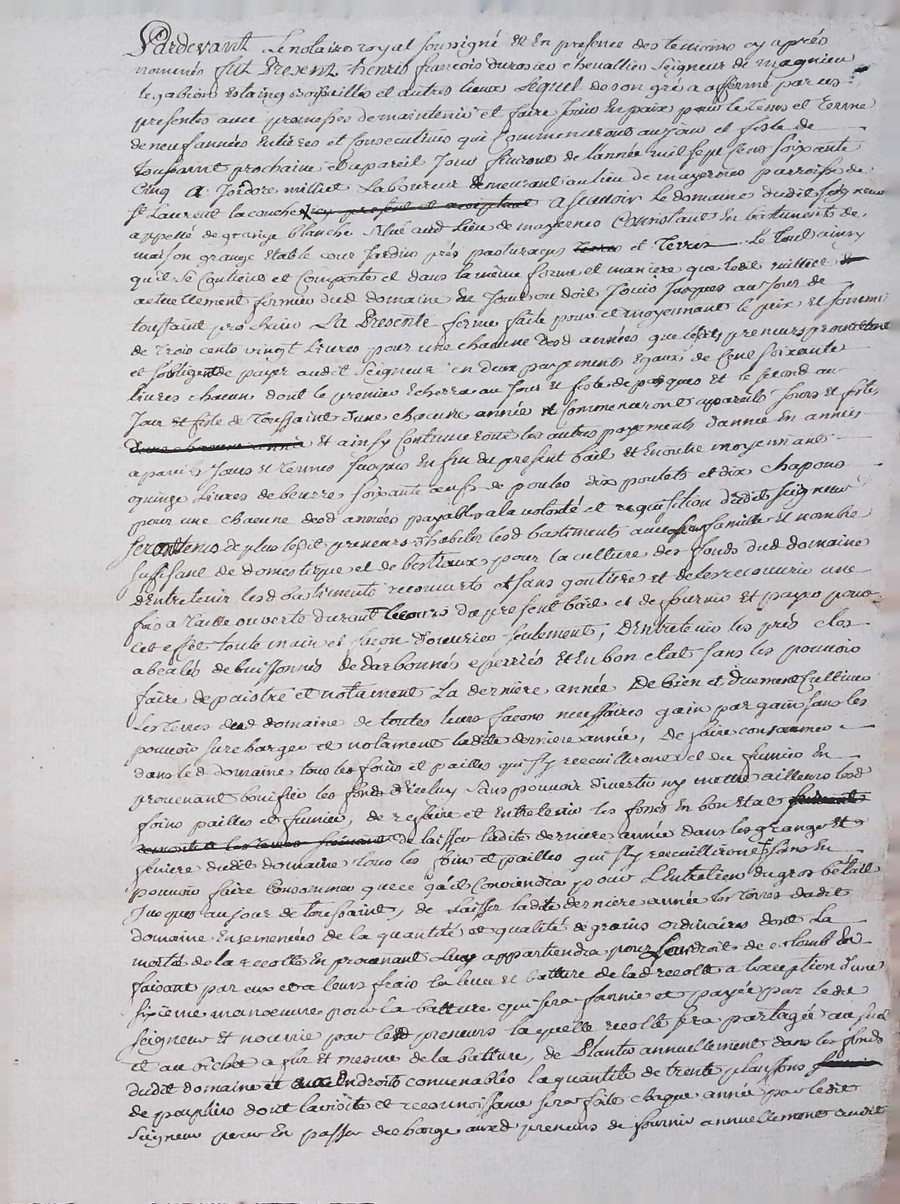 Pardevant Le notaire royal soussigné Et En presence des temoins cy après
nommés fut Present henris françois durosier chevallier Seigneur de magnieu
le gabion Estaing et autres lieux Lequel de son gré a affermé par ces
presentes avec promesses de maintenir et faire Jouir En paix pour le Tems et terme
de neuf années Entieres et Consecutives qui Commenceront au jour et feste de
toussaint prochain et a pareil Jour finiront de l'année mil sept Cens soixante
Cinq A Isidore milliet Laboureur demeurant au lieu de mayernes parroisse de
st Laurent la conche icy present et acceptant a scavoir le domaine dudit Seigneur
appellé de grange blanche situé aud Lieu de mayernes Consistant En bastiments de
maison grange Etable cour Jardin prés pasturages terres et Terres Le Tout ainsy
qu'il se Contient et Comporte et dans la même forme et maniere que ledit milliet
actuellement fermier dud domaine En Jouit ou doit Jouir Jusques au Jour de
toussaint prochain La Presente ferme faite pour et moyennant le prix et somme
de Trois cents vingt Livres pour une chacune desd années que lesdits preneurs promettent
et s'obligent de payer audit Seigneur en deux payements Egaux de Cent soixante
livres chacun dont le premier Echerra au Jour et feste de pasques et le second au
Jour et feste de Toussaint d'une chacune année et Commenceront a pareils Jours et festes
d'une chacune année Et ainsy Continueront les autres payements d'année en année
a pareils Jours et termes Jusques En fin du present bail Et En outre moyennant
quinze livres de beurre soixante œufs de poules dix poulets et dix chapons
pour une chacune desd années payables a la volonté et requisition dudit Seigneur
seront tenus de plus lesdit preneurs d'habiter lesd bastiments avec leur famille et nombre
suffisant de domestique et de bestiaux pour la culture des fonds dud domaine
d'Entretenir lesd bastiments recouverts et sans goutiere et de les recouvrir une
fois a taille ouverte durant le cours du present bail et de fournir Et payer pour
Cet effet toute main et façon d'ouvrier seulement, D'Entretenir les prés clos
de buissonnés et En bon etat sans les pouvoir
faire depaistre et notament La derniere année De bien et Duement Cultiver
Les terres dud domaine de toutes leurs façons necessaires gain par gain sans les
pouvoir surcharger et notament ladite derniere année, De faire consommer
dans led domaine tous les foins et pailles qui s'y receuilliront et du fumier En
provenant bonifier les fonds d'iceluy sans pouvoir divertir ny mettre ailleurs lesd
foins pailles et fumier, de refaire et Entretenir les fossés En bon Etat
de laisser ladite derniere année dans les granges Et
feniere dudit domaine tous les foin et pailles qui s'y receuilliront sans En
pouvoir faire Consommer que ce qu'il Conviendra pour L'Entretien du gros bétail
Jusques au jour de toussaint, de Laisser ladite derniere année les terres dudit
domaine Ensemencées de la quantité et qualité de grains ordinaires dont La
moitié de la recolte En provenant Luy appartiendra pour Leur droit de colomb En
faisant par eux et a leurs fraix la levée Et batture de lad recolte a l'exception d'une
sixieme manœuvre pour la batture qui sera fournie et payée par ledit
Seigneur Et nourrie par lesd preneurs laquelle recolte sera partagée au
et au bichet a fur et mesure de la batture, de Planter annuellement dans les fonds
dudit domaine et aux Endroits convenables la quantité de trente plansons
de peupliers dont la visite et reconnoissance sera faite chaque année par ledit
Seigneur pour En passer decharge auxd preneurs de fournir annuellement audit